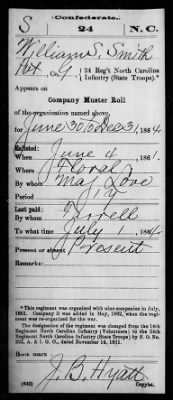 Confederate.
S 24 N.C.
William S. Smith
Pvt, Co. 24 Reg't North Carolina
Infantry (State Troops).*
Appears on
Company Muster Roll
of the organization named above,
for June 30 to Dec 31, 1864
Enlisted:
When June 4, 1861.
Where
By whom Maj Love
Period
Last paid:
By whom Terrell
To what time July 1, 1864
Present or absent Present
Remarks:
*This regiment was organized with nine companies in July,
1861. Company D was added in May, 1862, when the regi-
ment was re-organized for the war.
The designation of the regiment was changed from the 14th
Regiment North Carolina Infantry (Volunteers) to the 24th
Regiment North Carolina Infantry (State Troops) by S. O. No.
222, A. & I. G. O., dated November 14, 1861.
Book mark:
J. B. Hyatt
(642) Copyist.